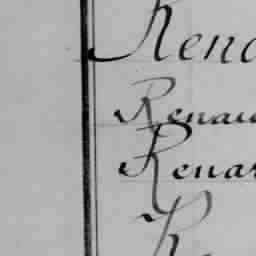 Rena
Renau
Renar
R